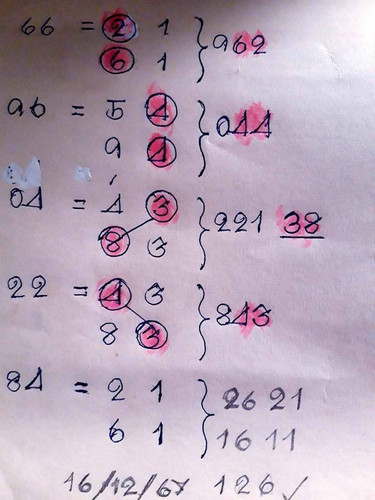 66 = 2 1
6 1 } 962
96 = 5 4
9 4 } 044
04 = 4 3
8 3 } 221 38
22 = 4 3
8 3 } 843
84 = 2 1 } 26 21
6 1 16 11
16/12/67 126 ✓